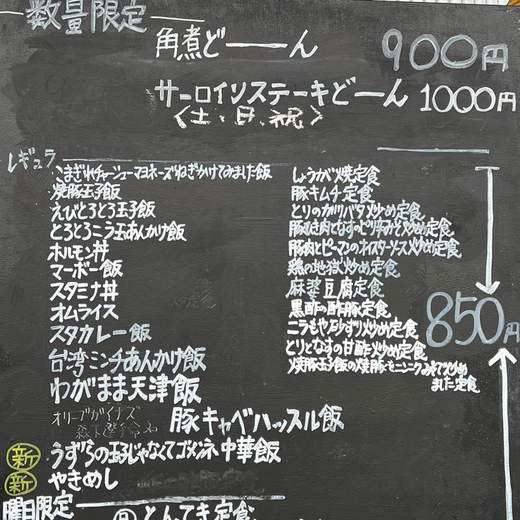 数量限定
角煮どーーん 900円
サーロインステーキどーん 1000円
<土、日、祝>
レギュラー
こまぎれチャーシューマヨネーズねぎかけてみました飯
焼豚玉子飯
えびとろとろ玉子飯
とろとろニラ玉あんかけ飯
ホルモン丼
マーボー飯
スタミナ丼
オムライス
スタカレー飯
台湾ミンチあんかけ飯
わがまま天津飯
オリーブガイナーズ
豚キャベハッスル飯
新 うずらの玉子じゃなくてゴメンネ中華飯
新 やきめし
しょうが焼定食
豚キムチ定食
とりのガリバタ炒め定食
豚ばら肉となすのピリ辛みそ炒め定食
豚肉とピーマンのオイスターソース炒め定食
鶏の地獄炒め定食
麻婆豆腐定食
黒酢の酢豚定食
ニラもやし砂ずり炒め定食
とりとなすの甘酢炒め定食
焼豚玉子飯の焼豚モーニングみれて炒め
ました定食
850円
曜日限定
日 とんてき定食